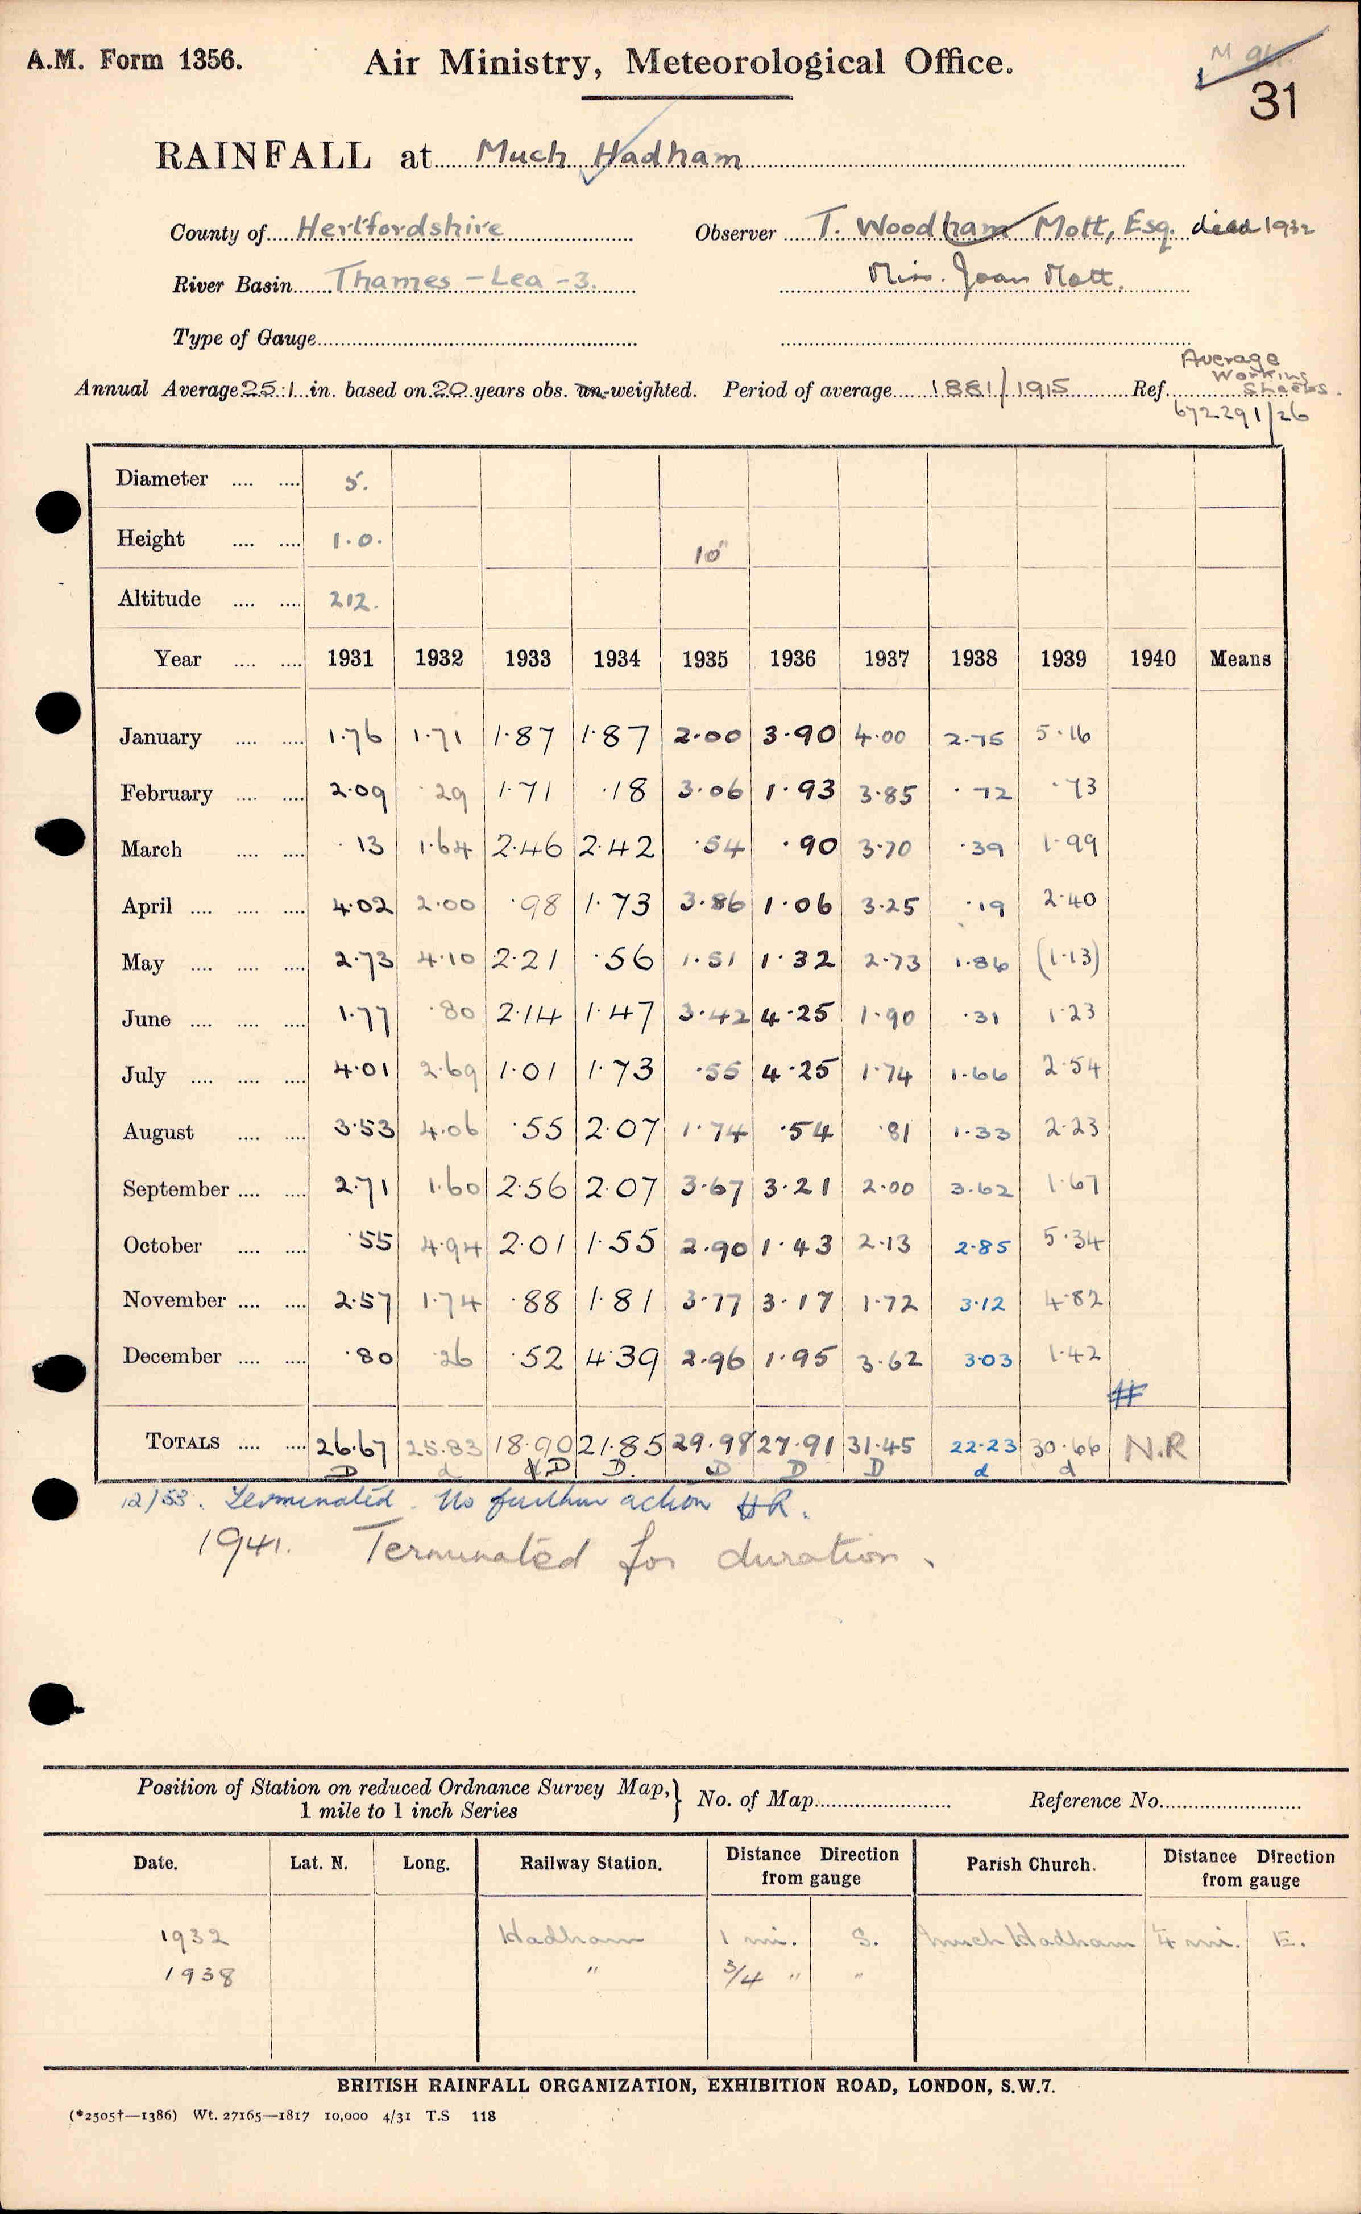 A.M. Form 1356. Air Ministry, Meteorological Office.
31
RAINFALL at Much Hadham
County of Hertfordshire Observer T. Woodham Mott, Esq. died 1932
River Basin Thames - Lea - 3. Miss. Joan Mott.
Type of Gauge
Average
Working
Sheets.
Annual Average 25.1 in. based on 20 years obs. un-weighted. Period of average 1881/1915 Ref.
672291/26
Diameter 5.
Height 1.0. 10"
Altitude 212.
Year 1931 1932 1933 1934 1935 1936 1937 1938 1939 1940 Means
January 1.76 1.71 1.87 1.87 2.00 3.90 4.00 2.75 5.16
February 2.09 .29 1.71 .18 3.06 1.93 3.85 .72 .73
March .13 1.64 2.46 2.42 .54 .90 3.70 .39 1.99
April 4.02 2.00 .98 1.73 3.86 1.06 3.25 .19 2.40
May 2.73 4.10 2.21 .56 1.51 1.32 2.73 1.86 (1.13)
June 1.77 .80 2.14 1.47 3.42 4.25 1.90 .31 1.23
July 4.01 2.69 1.01 1.73 .55 4.25 1.74 1.66 2.54
August 3.53 4.06 .55 2.07 1.74 .54 .81 1.33 2.23
September 2.71 1.60 2.56 2.07 3.67 3.21 2.00 3.62 1.67
October .55 4.94 2.01 1.55 2.90 1.43 2.13 2.85 5.34
November 2.57 1.74 .88 1.81 3.77 3.17 1.72 3.12 4.82
December .80 .26 .52 4.39 2.96 1.95 3.62 3.03 1.42
#
TOTALS 26.67 25.83 18.90 21.85 29.98 27.91 31.45 22.23 30.66 N.R
D d D D. D D D d d
12/53. Terminated. No further action HR.
1941. Terminated for duration.
Position of Station on reduced Ordnance Survey Map,} No. of Map Reference No.
1 mile to 1 inch Series
Date. Lat. N. Long. Railway Station. Distance Direction from gauge Parish Church. Distance Direction from gauge
1932 Hadham 1 mi. S. Much Hadham ¼ mi. E.
1938 " 3/4 " "
BRITISH RAINFALL ORGANIZATION, EXHIBITION ROAD, LONDON, S.W.7.
(*2505†—1386) Wt. 27165—1817 10,000 4/31 T.S 118